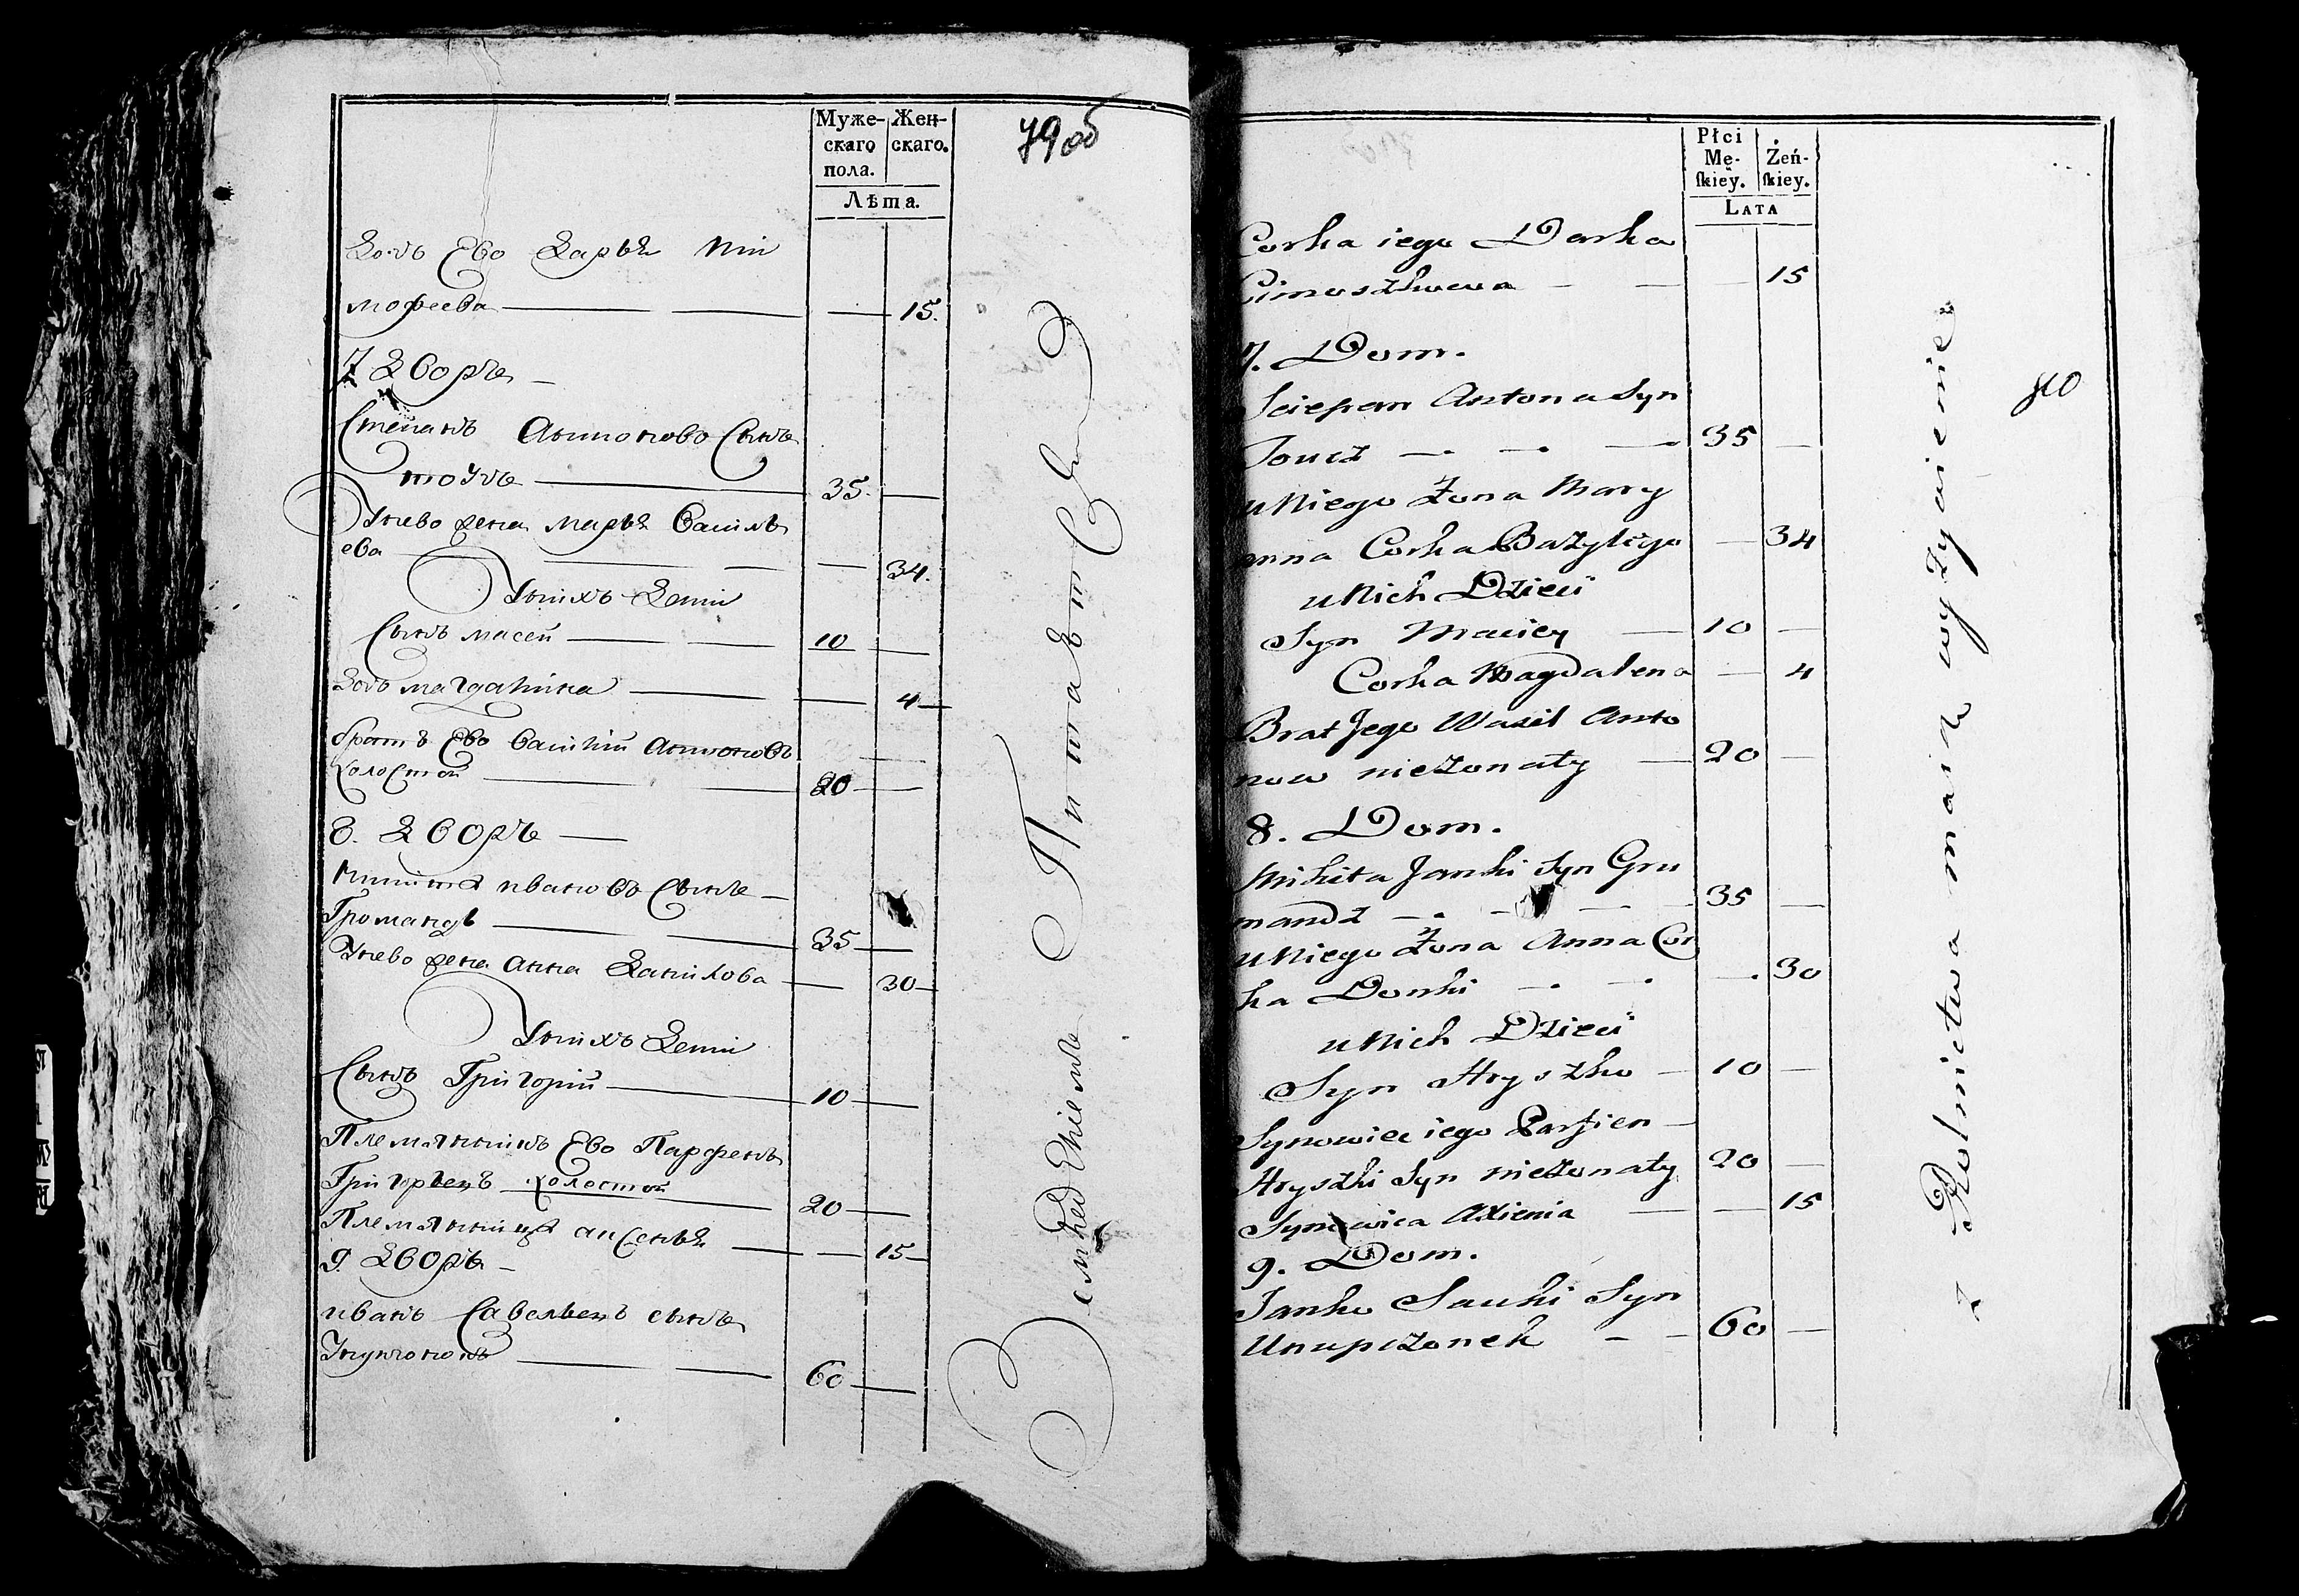 Муже-
скаго
пола.
Жен-
скаго.
Лѣта.
79об
Дочь Ево Дарья Ти
мофеева — — — 15.
7 Дворъ —
Степанъ Антоновъ Сынъ
Точъ — 35. —
Унево жена Марья Василь
ева — — 34.
Унихъ Дети
Сынъ Масей — 10 —
Дочь Магдалина — — 4
братъ Ево Василий Антоновъ
холостой — 20 —
8. Дворъ —
Никита ивановъ Сынъ —
Громандь — 35 —
Унево жена Анна Данилова — 30
Унихъ Дети
Сынъ Григорий — 10 —
Племянникъ Ево Парфенъ
Григорьевъ холостой 20 —
Племянница аксенья — — 15
9. Дворъ —
иванъ Савельевъ сынъ
— 60 —
Питаетса
Płci
Mę-
skiey.
Żeń-
skiey.
LATA
80
Corka iego Darka
Cimoszkowa — — — 15
7. Dom.
Sciepan Antona Syn
Toucz — — — 35 —
u Niego Żona Mary
anna Corka Bazylego — 34
u Nich Dzieci
Syn Maciey — 10 —
Corka Magdalena — 4
Brat Jego Wasil Anto
now nieżonaty — 20 —
8. Dom.
Mikita Janki Syn Gru
mandz — — — 35 —
u Niego Żona Anna Cor
ka Donki — — — 30
u Nich Dzieci
Syn Hryszko — 10 —
Synowiec iego Parfien —
Hryszki Syn nieżonaty 20 —
Synowica Axienia — — 15
9. Dom.
Janko Sauki Syn
Unupczonek — — 60 —
z Rolnictwa maią wyżywienie